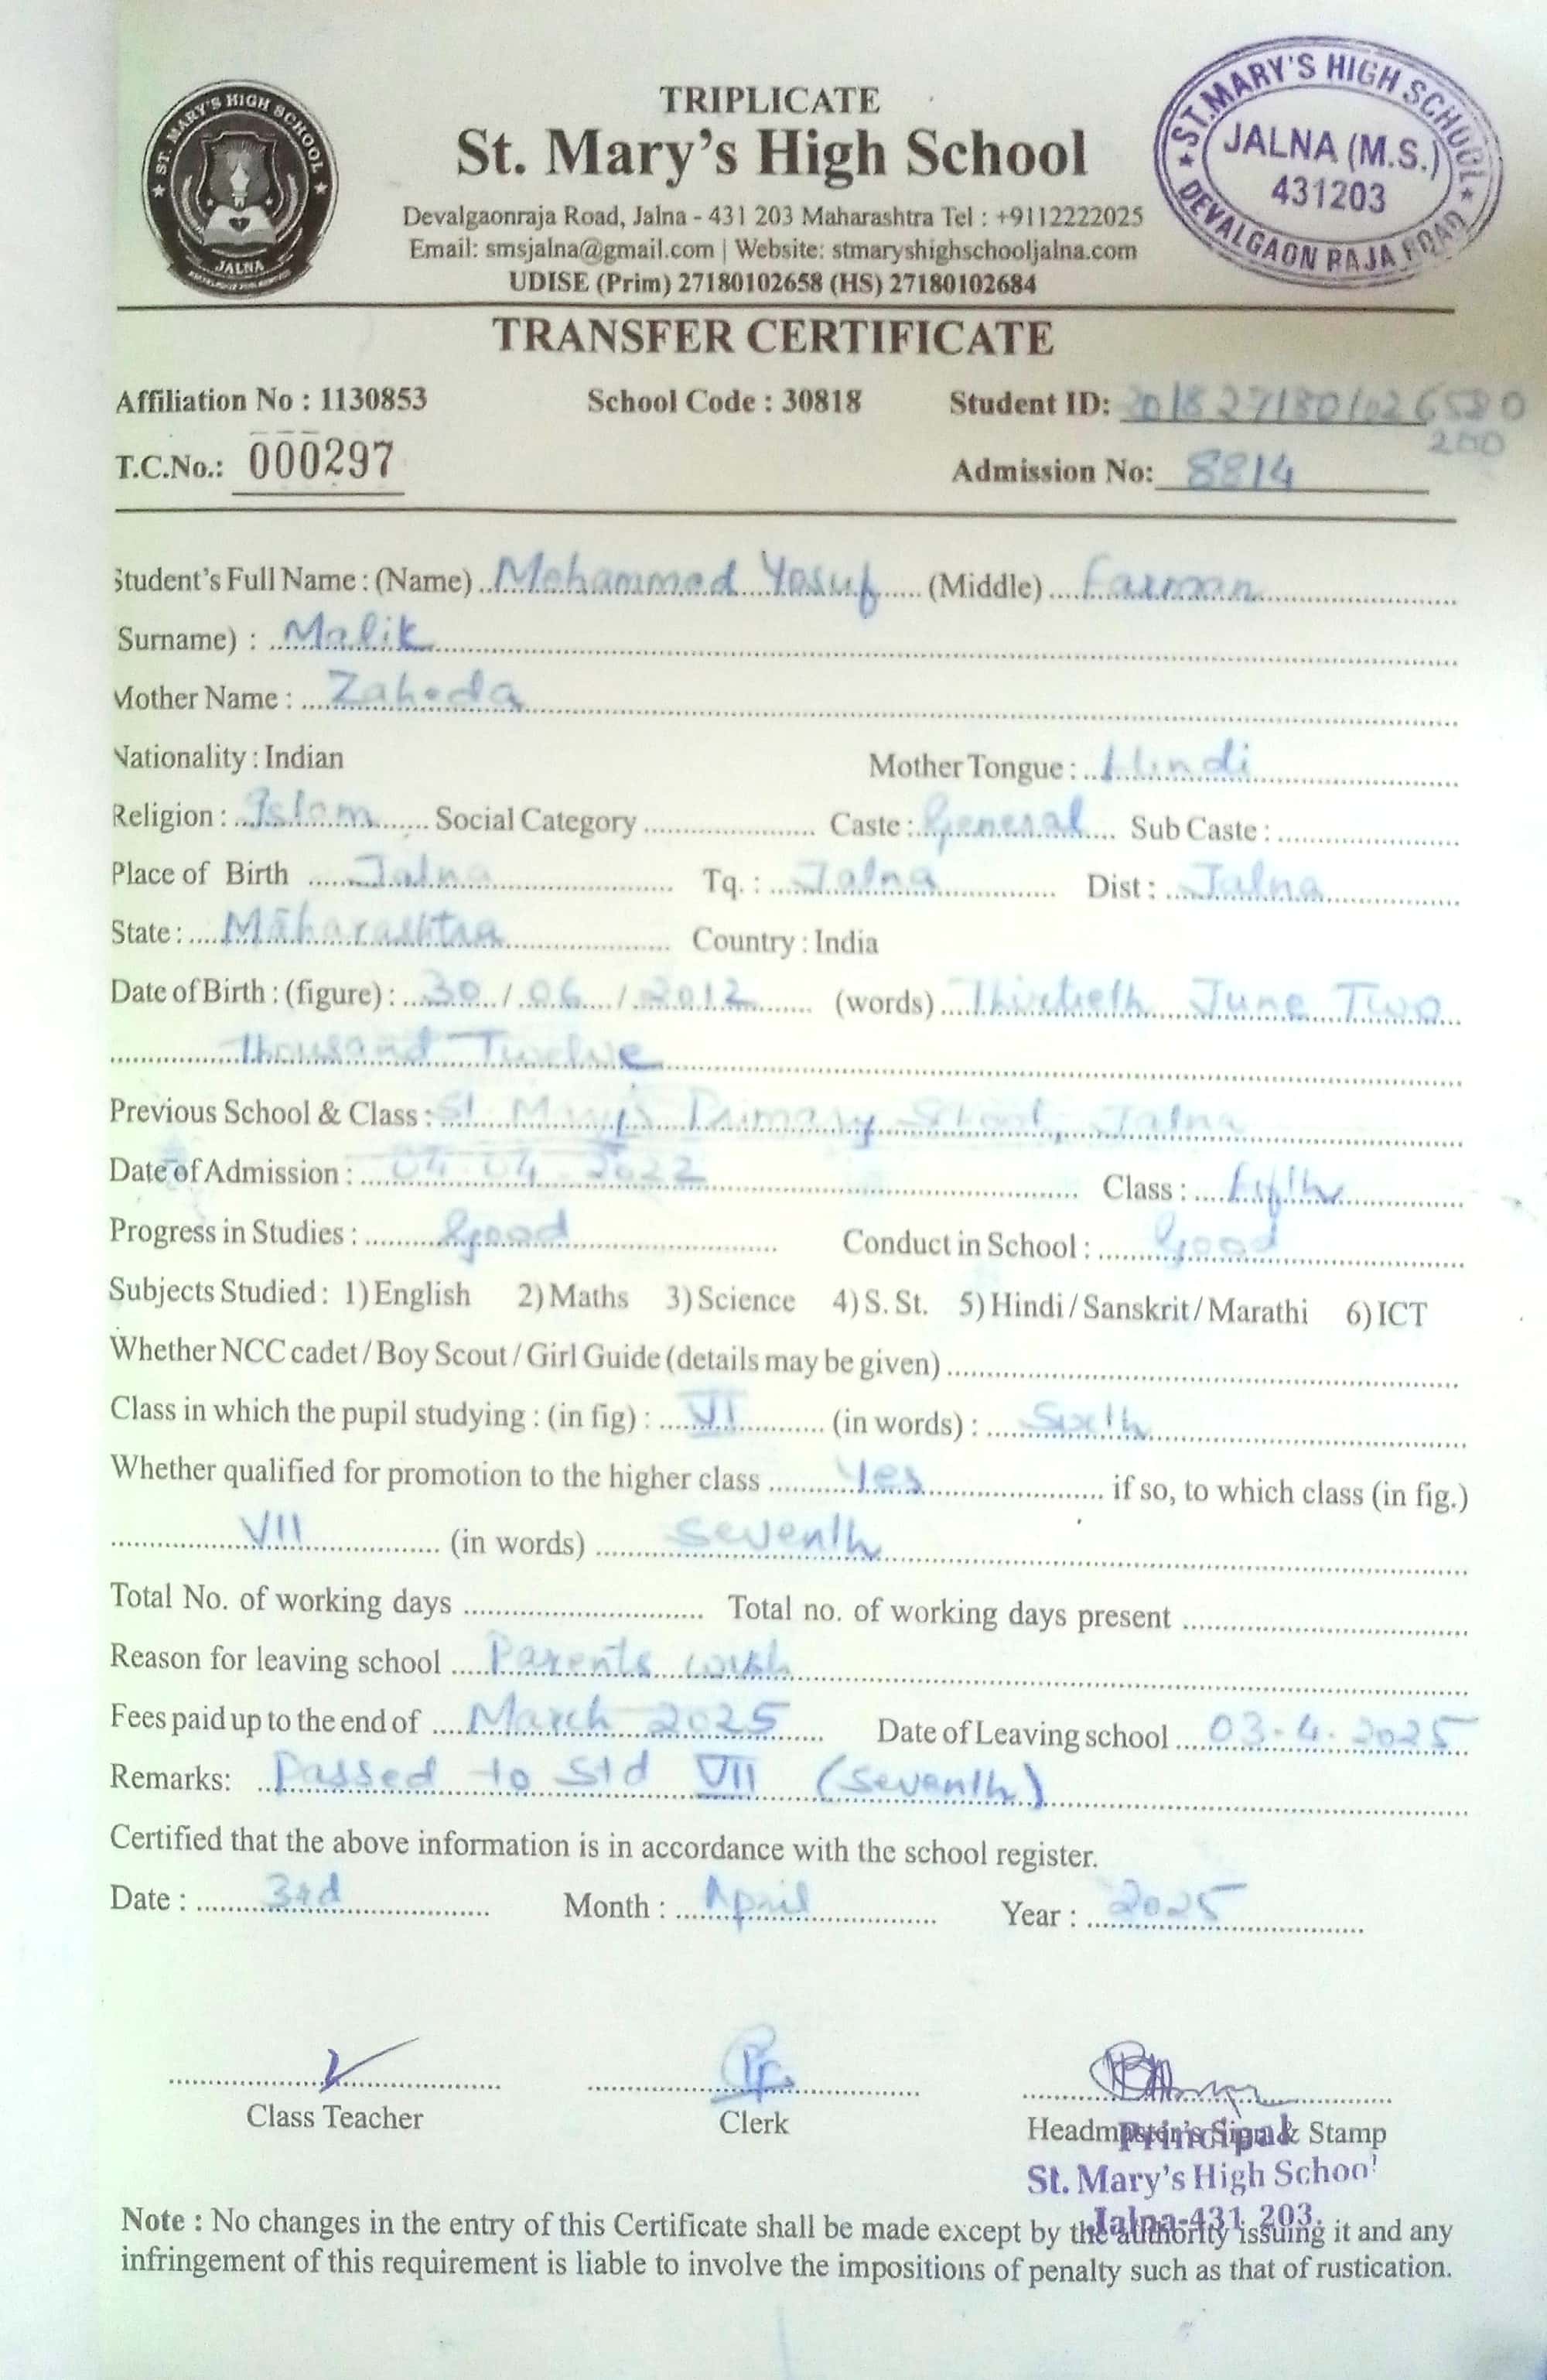 TRIPLICATE
St. Mary's High School
Devalgaonraja Road, Jalna - 431 203 Maharashtra Tel : +9112222025
Email: smsjalna@gmail.com | Website: stmaryshighschooljalna.com
UDISE (Prim) 27180102658 (HS) 27180102684
ST. MARY'S HIGH SCHOOL
JALNA
ST.MARY'S HIGH SCHOOL
JALNA (M.S.)
431203
DEVALGAON RAJA ROAD
TRANSFER CERTIFICATE
Affiliation No : 1130853 School Code : 30818 Student ID: 2018271801026580
200
T.C.No.: 000297 Admission No: 8814
Student's Full Name : (Name) Mohammed Yosuf (Middle) Farman
Surname) : Malik
Mother Name : Zaheda
Nationality : Indian Mother Tongue : Hindi
Religion : Islam Social Category Caste : General Sub Caste :
Place of Birth Jalna Tq. : Jalna Dist : Jalna
State : Maharashtra Country : India
Date of Birth : (figure) : 30 / 06 / 2012 (words) Thirtieth June Two
Thousand Twelve
Previous School & Class : St. Mary's Primary School, Jalna
Date of Admission : 04.04.2022 Class : Fifth
Progress in Studies : Good Conduct in School : Good
Subjects Studied : 1) English 2) Maths 3) Science 4) S. St. 5) Hindi / Sanskrit / Marathi 6) ICT
Whether NCC cadet / Boy Scout / Girl Guide (details may be given)
Class in which the pupil studying : (in fig) : VI (in words) : Sixth
Whether qualified for promotion to the higher class Yes if so, to which class (in fig.)
VII (in words) Seventh
Total No. of working days Total no. of working days present
Reason for leaving school Parents wish
Fees paid up to the end of March 2025 Date of Leaving school 03-4-2025
Remarks: Passed to Std VII (Seventh)
Certified that the above information is in accordance with the school register.
Date : 3rd Month : April Year : 2025
Class Teacher Clerk Headmaster's Sign & Stamp
Principal
St. Mary's High School
Jalna-431 203.
Note : No changes in the entry of this Certificate shall be made except by the authority issuing it and any
infringement of this requirement is liable to involve the impositions of penalty such as that of rustication.